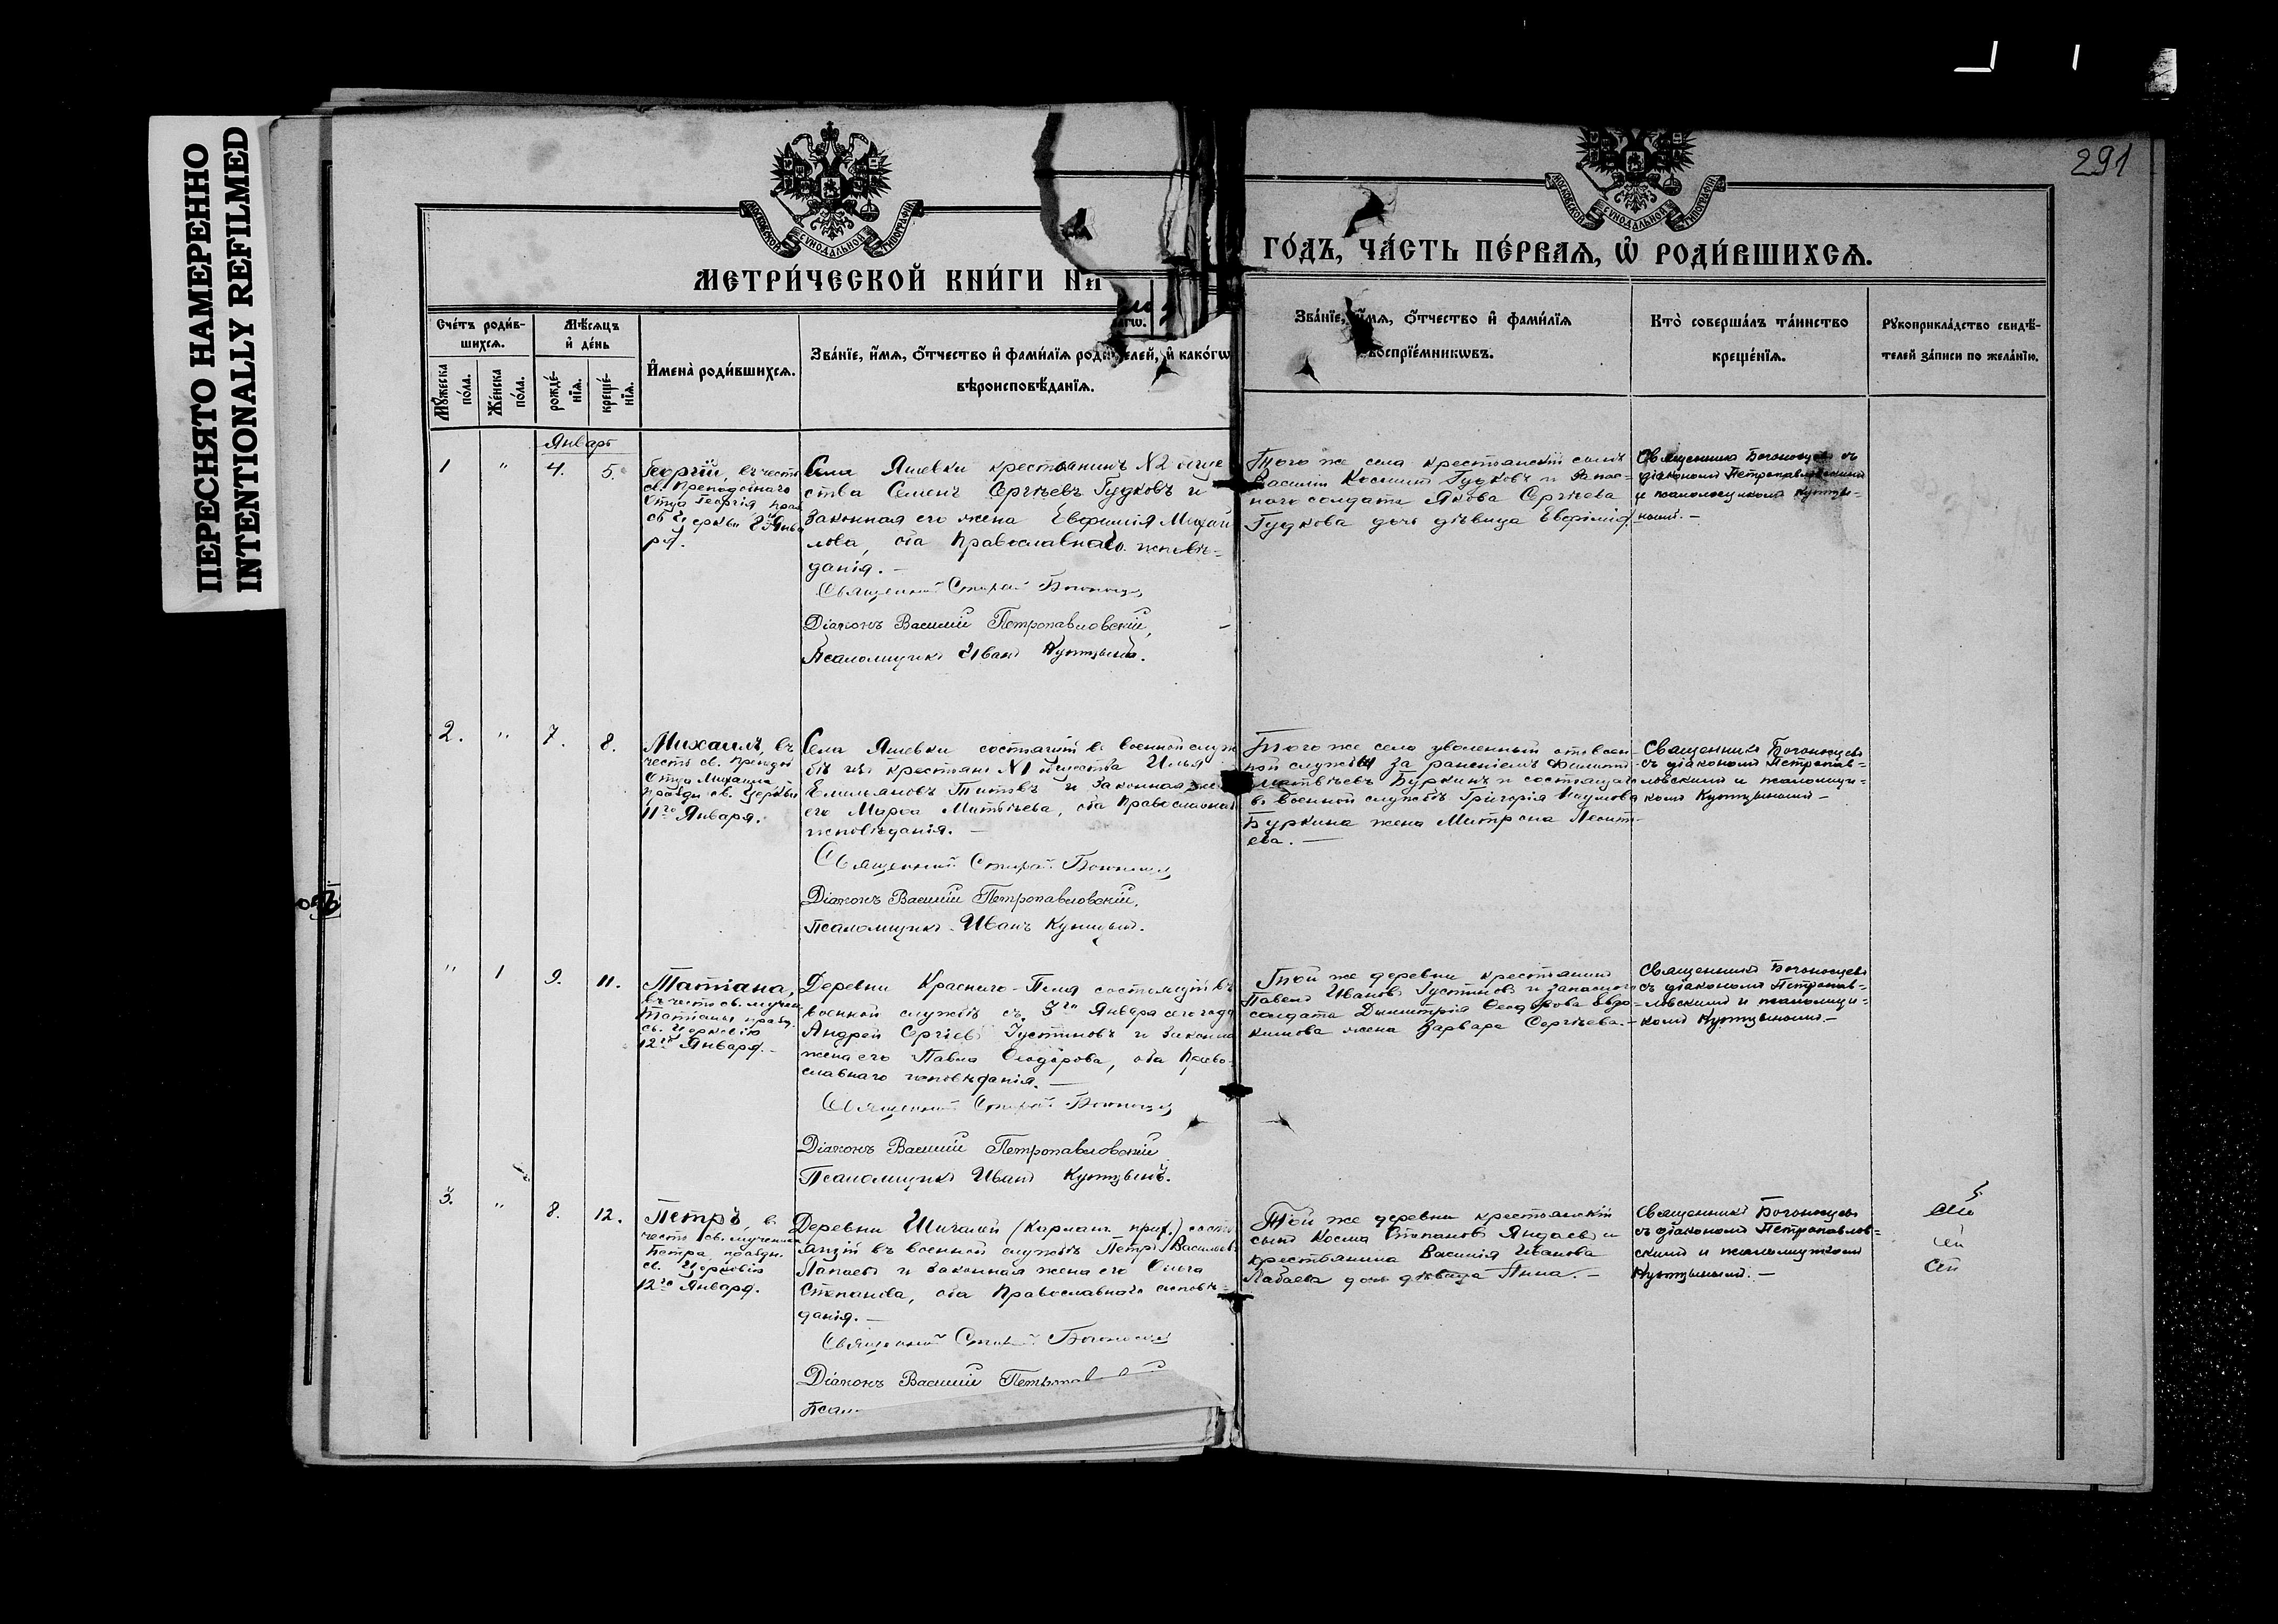 ПЕРЕСНЯТО НАМЕРЕННО
INTENTIONALLY REFILMED
291
МОСКОВСКОЙ СУНОДАЛЬНОЙ ТИПОГРАФІИ
МОСКОВСКОЙ СУНОДАЛЬНОЙ ТИПОГРАФІИ
МЕТРИ́ЧЕСКОЙ КНИ́ГИ НА
ГО́ДЪ, ЧА́СТЬ ПЕ́РВАѦ, Ѡ҆ РОДИ́ВШИХСѦ.
Сче́тъ роди́в-
шихсѧ.
Мꙋ́жеска по́ла.
Же́нска по́ла.
Мѣ́сѧцъ
и҆ де́нь
рожде́-
нїѧ.
креще́-
нїѧ.
И҆мена̀ роди́вшихсѧ.
Зва́нїе, и҆́мѧ, ѻ҆́тчество и҆ фами́лїѧ роди́телей, и҆ како́гѡ
вѣроисповѣ́данїѧ.
Зва́нїе, и҆́мѧ, ѻ҆́тчество и҆ фами́лїѧ
воспрїе́мникѡвъ.
Кто̀ соверша́лъ та́инство
креще́нїѧ.
Рꙋкоприкла́дство свидѣ́-
телей за́писи по жела́нїю.
Январь
1 " 4. 5.
Георгій, въ честь
св. Преподобнаго
Отца Георгія
св. Церковью
Села Яшевки крестьянинъ № 2 обще
ства Семенъ Сергѣевъ Гудковъ и
законная его жена Евфимія Михай
лова, оба Православнаго исповѣ-
данія. —
Священникъ
Діаконъ Василій Петропавловскій,
Псаломщикъ Иванъ Куптцынъ.
Того же села крестьянскій сынъ
Василій Косминъ Гудковъ и запас-
наго солдата Якова Сергѣева
Гудкова дочь дѣвица Евфимія.
Священникъ Богоносцевъ съ
діакономъ Петропавловскимъ
и псаломщикомъ Куптцы-
нымъ. —
2. " 7. 8.
Михаилъ, въ
честь св. Препод
Отца Михаила
празд. св. Церковью
11го Января.
Села Яшевки состоящій въ военной служ
бѣ изъ крестьянъ № 1 общества Илья
Емельяновъ Титовъ и законная жена
его Марѳа Матвѣева, оба Православнаго
исповѣданія. —
Священникъ
Діаконъ Василій Петропавловскій.
Псаломщикъ Иванъ Куптцынъ.
Того же села уволенный отъ воен-
ной службы за раненіемъ
Матвѣевъ Буркинъ и состоящаго
въ военной службѣ Григорія Наумова
Буркина жена Матрона Леонть-
ева. —
Священникъ Богоносцевъ
съ діакономъ Петропав-
ловскимъ и псаломщи-
комъ Куптцынымъ —
" 1 9. 11.
Татіана,
въ честь св. мучен.
Татіаны празд.
св. Церковію
12го Января. —
Деревни Краснаго-Поля состоящій въ
военной службѣ съ 3го Января сего года
Андрей Сергѣевъ Густиновъ и законная
жена его Павла Ѳеодорова, оба Право-
славнаго исповѣданія. —
Священникъ
Діаконъ Василій Петропавловскій
Псаломщикъ Иванъ Куптцынъ.
Той же деревни крестьянинъ
Павелъ Ивановъ Густиновъ и запаснаго
солдата Дмитрія Ѳеодорова Евдо-
кимова жена Варвара Сергѣева. —
Священникъ Богоносцевъ
съ діакономъ Петропав-
ловскимъ и псаломщи-
комъ Куптцынымъ. —
3. " 8. 12.
Петръ, въ
честь св. мученика
Петра праздн.
св. Церковію
12го Января.
Деревни Шичалей (Карман. прих.) состо
ящій въ военной службѣ Петръ Васильевъ
Лапаевъ и законная жена его Ольга
Степанова, оба Православнаго исповѣ-
данія. —
Священникъ
Діаконъ Василій
Той же деревни крестьянскій
сынъ Косма Степановъ Яндаевъ и
крестьянина Василія Иванова
Лабаева дочь дѣвица Анна. —
Священникъ Богоносцевъ
съ діакономъ Петропавлов-
скимъ и псаломщикомъ
Куптцынымъ. —